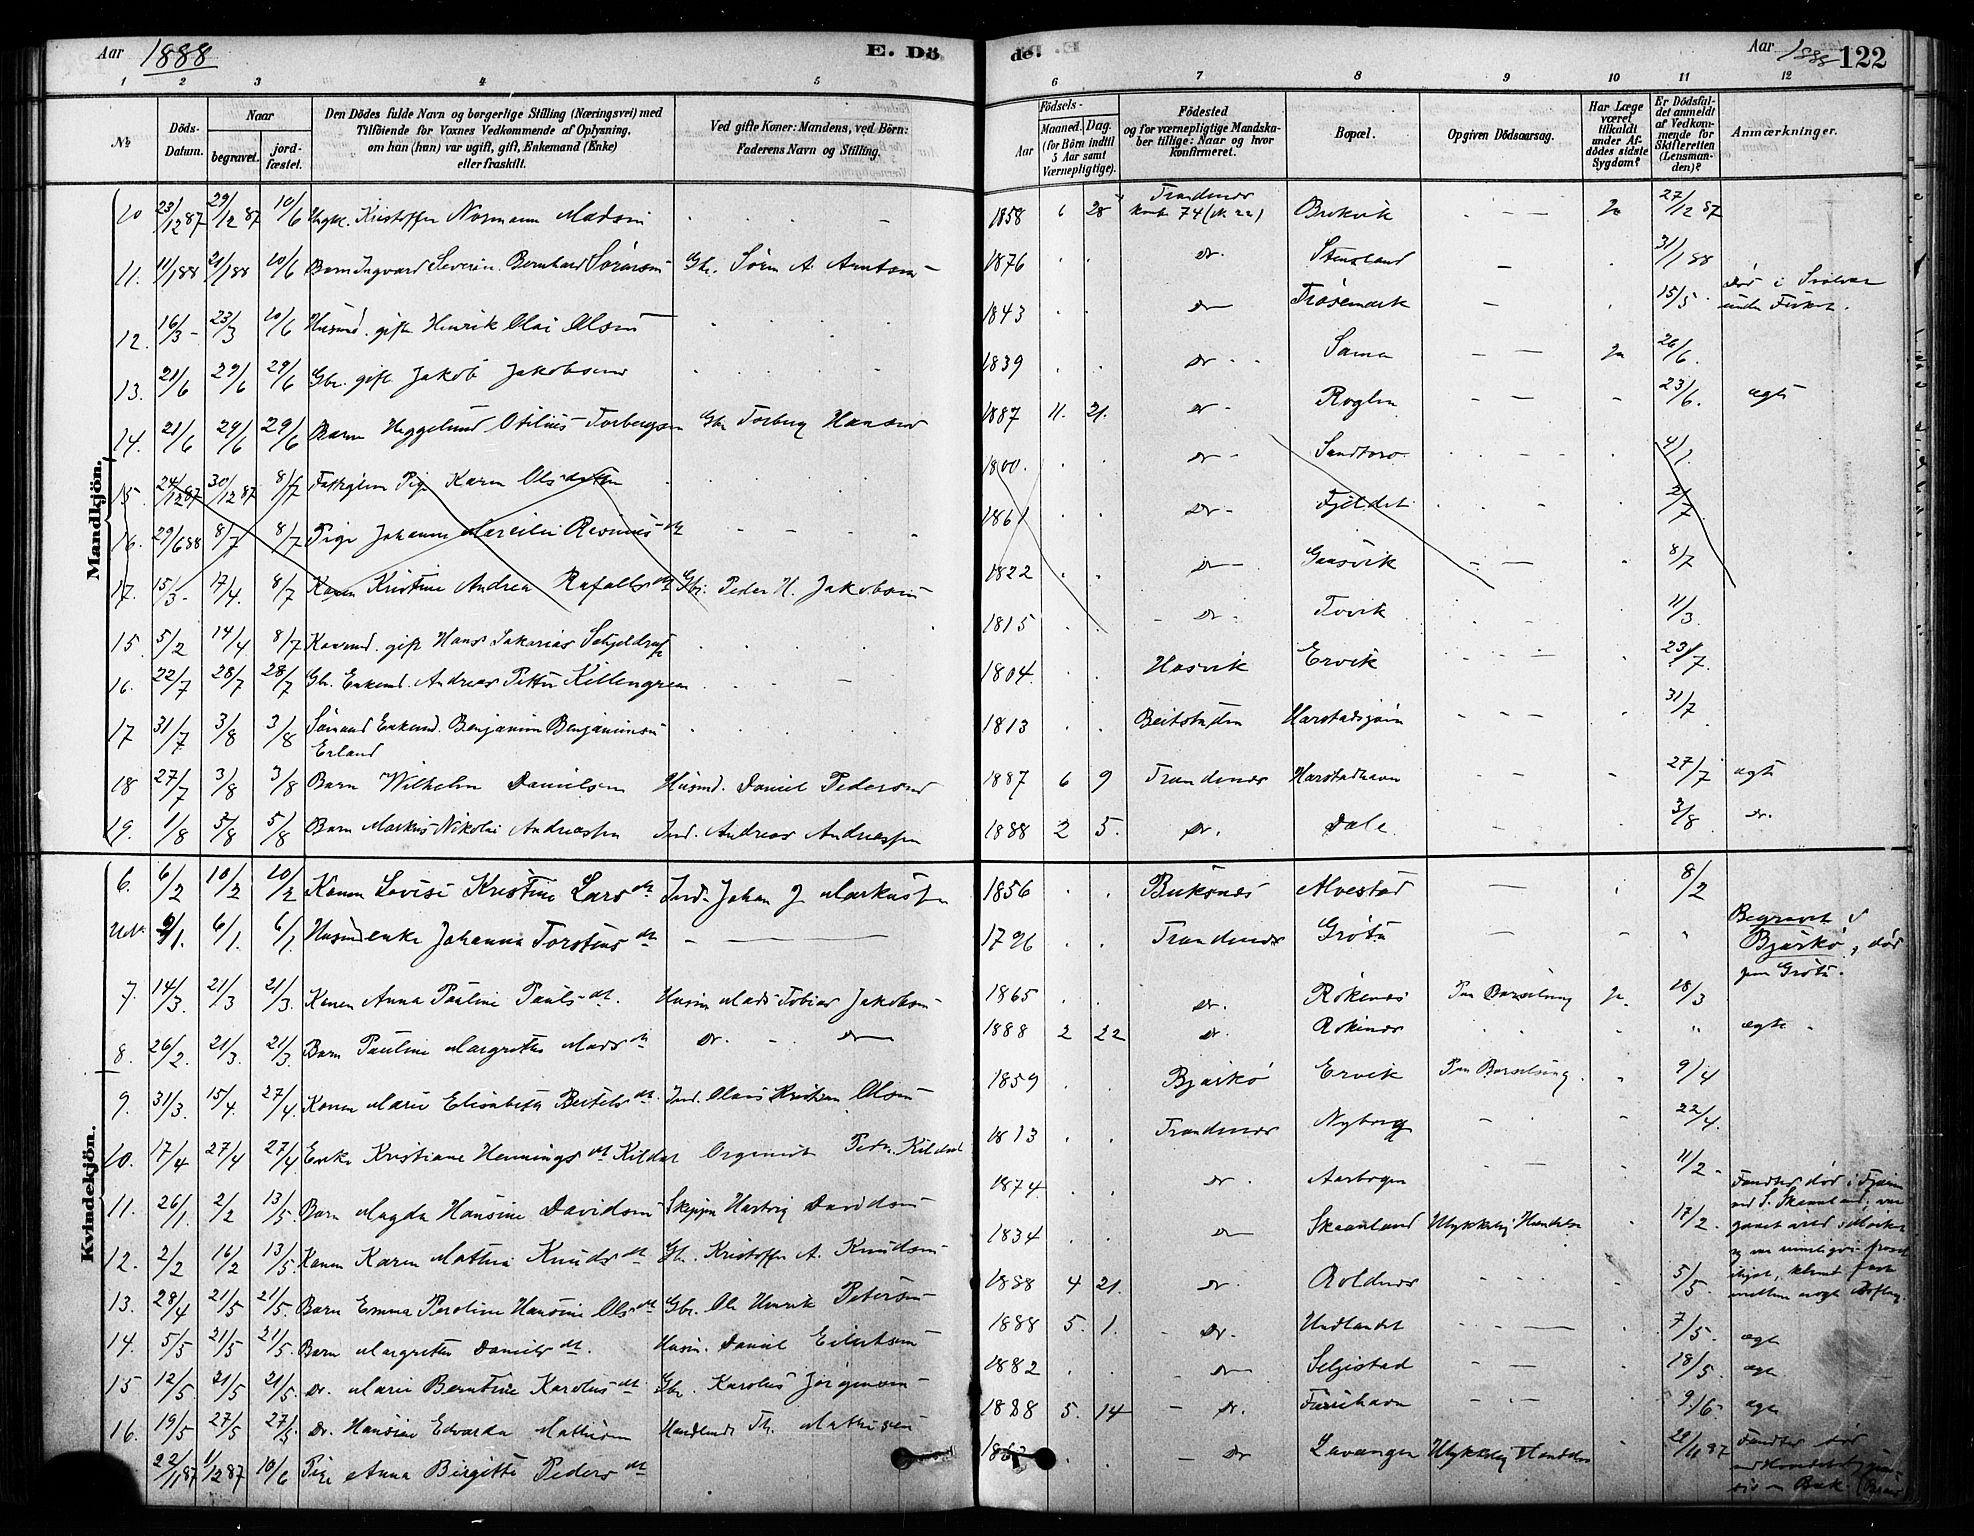 Aar 1888 E. Dö de. Aar 1888 122
1 2 3 4 5 6 7 8 9 10 11 12
No Döds-Datum. Naar begravet. jord-fæstet. Den Dödes fulde Navn og borgerlige Stilling (Næringsvei) med Tilföiende for Voxnes Vedkommende af Oplysning, om han (hun) var ugift, gift, Enkemand (Enke) eller fraskilt. Ved gifte Koner: Mandens, ved Börn: Faderens Navn og Stilling. Födsels- Aar Maaned. Dag. (for Börn indtil 5 Aar samt Værnepligtige). Födested og for værnepligtige Mandska-ber tillige: Naar og hvor konfirmeret. Bopæl. Opgiven Dödsaarsag. Har Læge været tilkaldt under Af-dödes sidste Sygdom? Er Dödsfal-det anmeldt af Vedkom-mende for Skifteretten (Lensman-den)? Anmærkninger.
Mandkjön.
10 23/12 87 29/12 87 10/6 Ungk. Kristoffer Normann Madsen 1858 6 28 Trondenæs Konf. 74 (N. 22) Brokvik Ja 27/12 87
11. 11/1 88 21/1 88 10/6 Barn Ingvard Severin Bernhard Sörensen Gbr. Sören A. Arntsen 1876 do. Stensland 31/1 88
12. 16/3 23/3 10/6 Husmd. gift Henrik Olai Olsen 1843 do Trösemark 15/5 död i Svolvær under Fisket.
13. 21/6 29/6 29/6 Gbr. gift Jakob Jakobsen 1839 do Sama Ja 26/6.
14. 21/6 29/6 29/6 Barn Heggelund Otilius Torbergsen Gbr Torberg Hansen 1887 11. 21. do Roglen 23/6. ægte
15. 24/12 87 30/12 87 8/7 Fattiglem Pige Karen Olsdatter 1800. do Sandtorv 4/1.
16. 29/6 88 8/7 8/7 Pige Johanna Mareilie Rasmusdt 1861 do Fjeldet 2/7.
17. 15/3 17/4. 8/7 Konen Kristine Andrea Rafaelsdt Gbr. Peder H. Jakobsen 1822 do Gausvik 8/7
15. 5/2 14/4 8/7 gift Hans Sakarias Schjeldrup 1815 do. Tovik 11/3
16. 22/7 28/7 28/7 Gbr. Enkemd. Andreas Petter Killengreen 1804 Hasvik Ervik 23/7.
17 31/7 3/8 3/8 Enkemd. Benjamin Benjaminsen Erland 1813 Beitstaden Harstadsjöen 31/7
18 27/7 3/8 3/8 Barn Wilhelm Danielsen Husmd. Daniel Pedersen 1887 6 9 Trondenæs Harstadhavn 27/7 ægte
19. 1/8 5/8 5/8 Barn Markus Nikolai Andreassen Ind. Andreas Andreassen 1888 2 5. do. Dale 3/8 do.
Kvindekjön.
6. 6/2 10/2 10/2 Konen Lovise Kristine Larsdt Ind. Johan J Markussen 1856 Buksnæs Alvestad 8/2
U.N. 2/1. 6/1. 6/1 Husmdenke Johanna Torstensdt 1796 Trondenæs Gröta Begravet i Bjarkö, död paa Gröta.
7. 14/3. 21/3 21/3. Konen Anna Pauline Paulsdt. Husm Mads Tobias Jakobsen 1865 do. Rökenes Paa Barselseng Ja. 18/3
8. 26/2. 21/3. 21/3. Barn Pauline Margrethe Madsdt do. do 1888 2 22 do. Rökenes ægte
9. 31/3. 15/4. 27/4. Konen Marie Elisabeth Bertelsdt. Ind. Olaus Kristian Olsen 1859 Bjarkö Ervik Paa Barselseng 9/4
10. 17/4 27/4 27/4 Enke Kristiane Henningsdt Kildal Peder Kildal 1813 Trondenæs Nyborg 22/4.
11. 26/1. 2/2 13/5. Barn Magda Hansine Davidsen Skipper Hartvig Davidsen 1874 do. Aarbogen 11/2
12. 2/2 16/2 13/5. Konen Karen Mathea Knudsdt Gbr. Kristoffer A. Knudsen 1834 do Skaanland Ulykkelig Hændelse 17/2. Fandtes död i Fjæren ved S. Skaanland, var
13. 28/4 21/5 21/5. Barn Emma Peroline Hansine Olsdt Gbr. Ole Henrik Petersen 1888 4 21. do. Roldnes 5/5.
14. 5/5 21/5 21/5. Barn Margrethe Danielsdt. Husm. Daniel Eilertsen 1888 5. 1. do. Undlandet 7/5. ægte
15 12/5 21/5 21/5. do. Marie Berntine Karolusdt Gbr. Karolus Jörgensen 1882 do Seljestad 18/5. ægte
16. 19/5 27/5 27/5. do. Hansine Edvarda Mathisen Handlende Th. Mathisen 1888 5. 14 do. Fauskhavn 9/6 ægte
22/11 87 1/12 87 10/6 Pige Anna Birgitte Pedersdt do Lavangen Ulykkelig Hændelse 29/11 87 Fandtes död